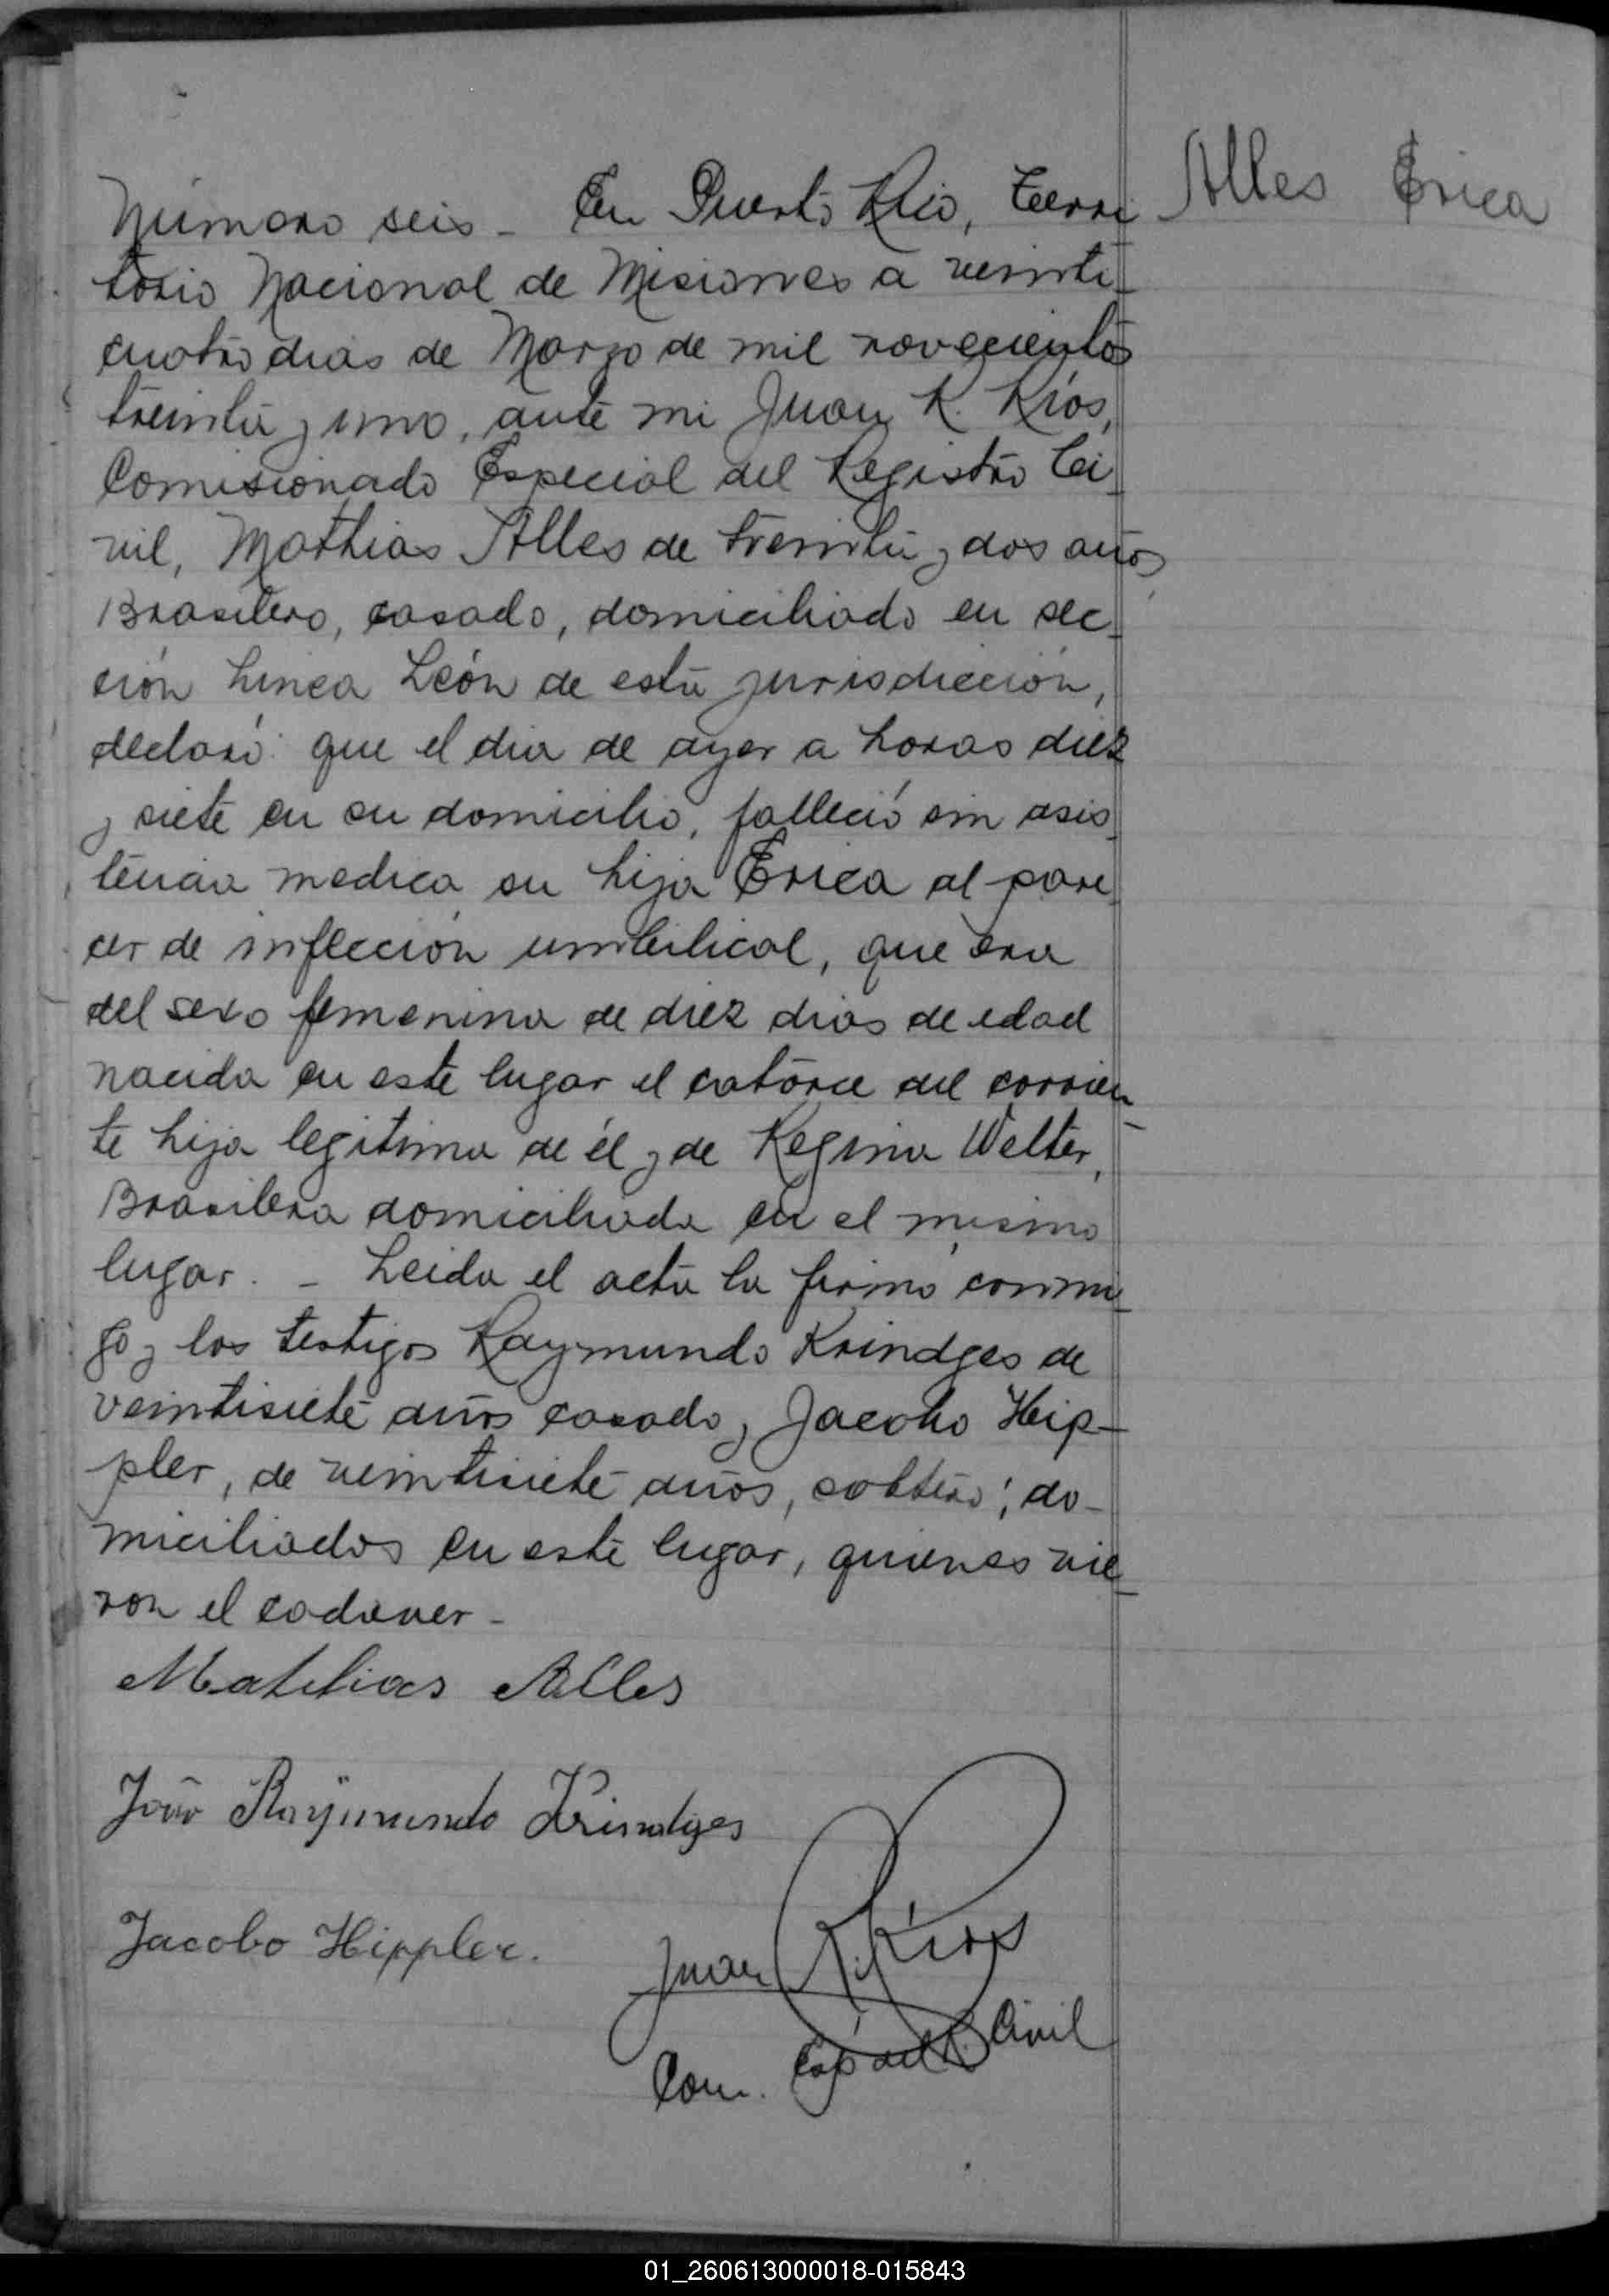 Alles Erica
Número seis - En Puerto Rico, Terri
torio Nacional de Misiones a veinti-
cuatro dias de Marzo de mil novecientos
treinta y uno, ante mi Juan R. Ríos,
Comisionado Especial del Registro Ci-
vil, Mathias Alles de treinta y dos años
Brasilero, casado, domiciliado en sec-
ción Linea León de esta jurisdicción,
declaró: que el dia de ayer a horas diez
y siete en su domicilio, falleció sin asis-
tencia medica su hija Erica al pare
cer de infleción umbilical, que era
del sexo femenina de diez dias de edad
nacida en este lugar el catorce del corrien-
te hija legitima de él y de Regina Welter,
Brasilera domiciliada en el mismo
lugar. - Leida el acta la firmó conmi-
go y los testigos Raymundo Krindges de
veintisiete años casado y Jacobo Hip-
pler, de veintisiete años, soltero; do-
miciliados en este lugar, quienes vie-
ron el cadaver -
Mathias Alles
João Raymundo Krindges
Jacobo Hippler.
Juan R. Ríos
Com. Esp del R. Civil
01_260613000018-015843